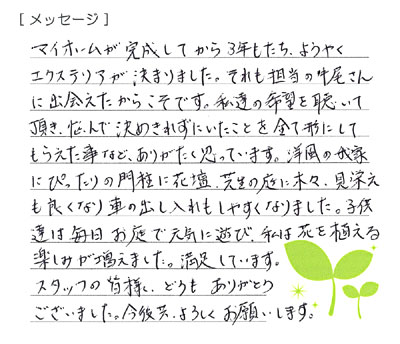 [メッセージ]
マイホームが完成してから3年もたち、ようやく
エクステリアが決まりました。それも担当の牛尾さん
に出会えたからこそです。私達の希望を聴いて
頂き、悩んで決めきれずにいたことを全て形にして
もらえた事など、ありがたく思っています。洋風の我家
にぴったりの門柱に花壇、芝生の庭に木々、見栄え
も良くなり車の出し入れもしやすくなりました。子供
達は毎日お庭で元気に遊び、私は花を植える
楽しみが増えました。満足しています。
スタッフの皆様、どうもありがとう
ございました。今後共、よろしくお願いします。